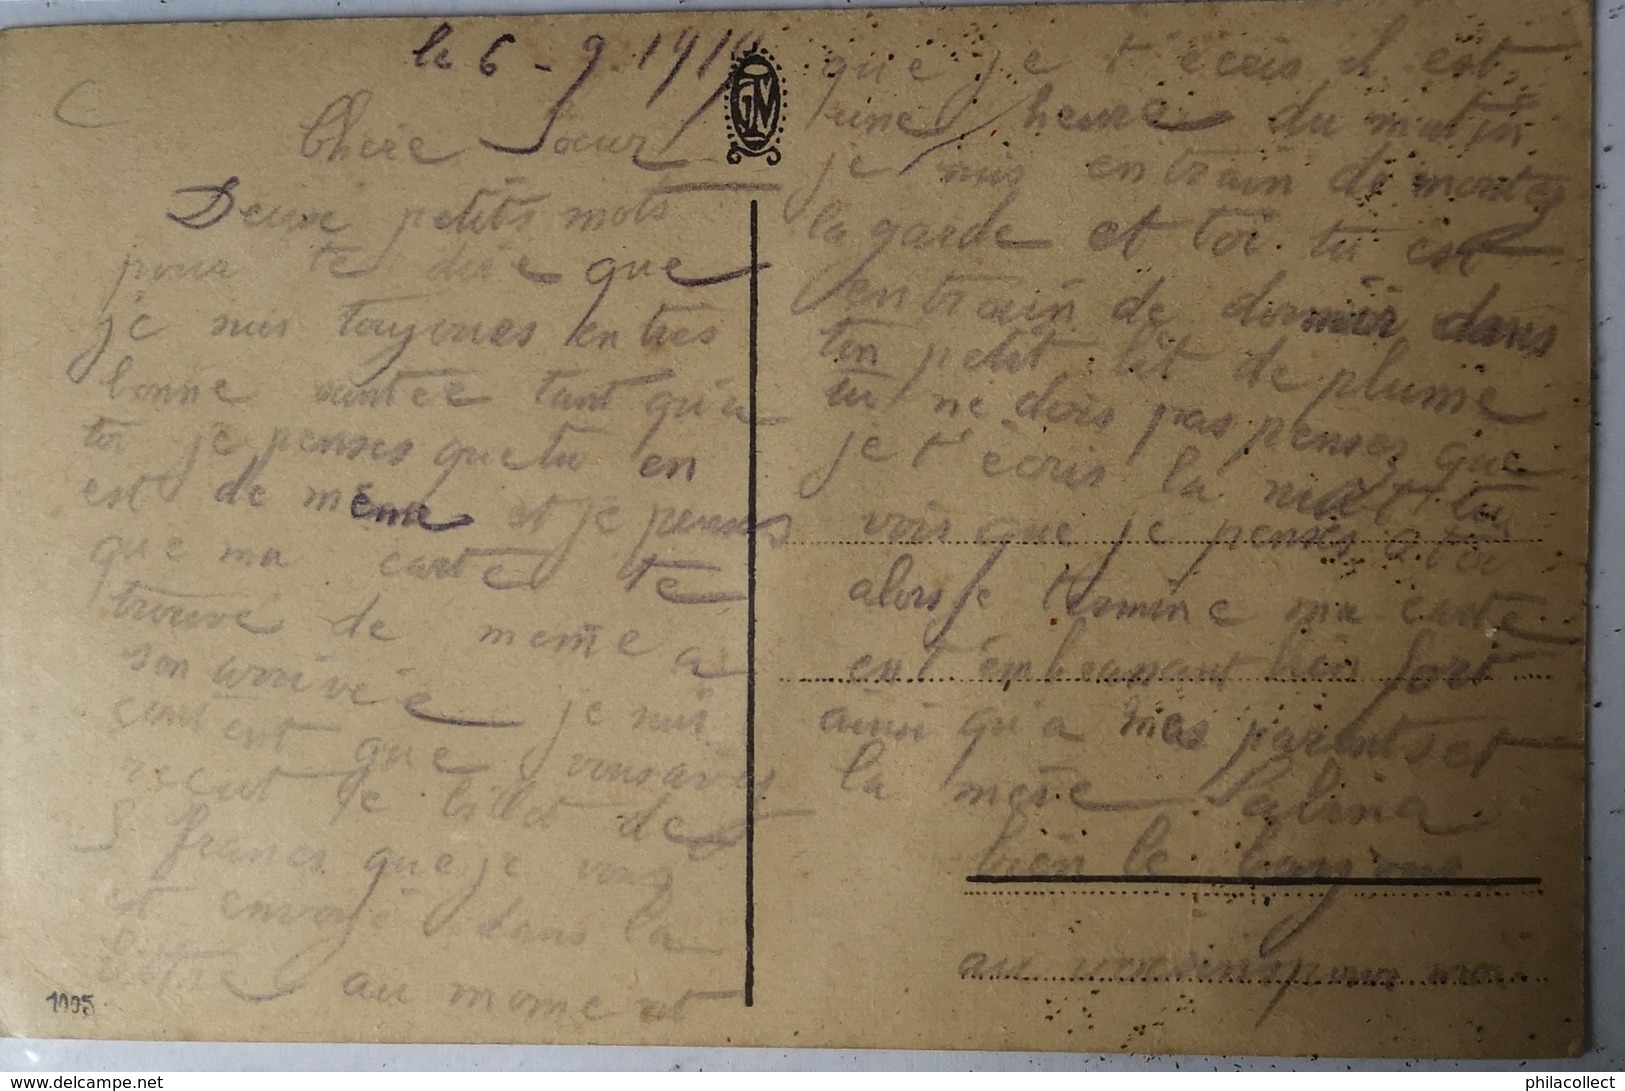 le 6 - 9 1919
Chere Soeur
Deux petits mots
pour te dire que
je suis toujours en tres
bonne santée tant qu'a
toi je penses que tu en
est de mème et je penses
que ma carte te
trouve de meme a
son arrivée je suis
content que vous aves
reçut le billet de
5 francs que je vous
est envoyé dans la
lettre au moment
que je t'écris il est
une heure du matin
je suis en train de monter
la garde et toi tu est
en train de dormir dans
ton petit lit de plume
tu ne dois pas penser que
je t'écris la nuit tu
vois que je penses a toi
alors je termine ma carte
en t'embrassant bien fort
ainsi qu'a mes parents et
la mere Salina
bien le bonjour
au voisins pour moi
GTV
1995
philacollect